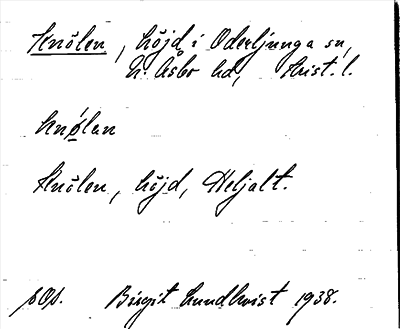 Knölen, höjd i Oderljunga sn,
N. Åsbo hd, Krist. l.
knø̀len
Knölen, höjd, Heljalt.
Birgit Lundkvist 1938.